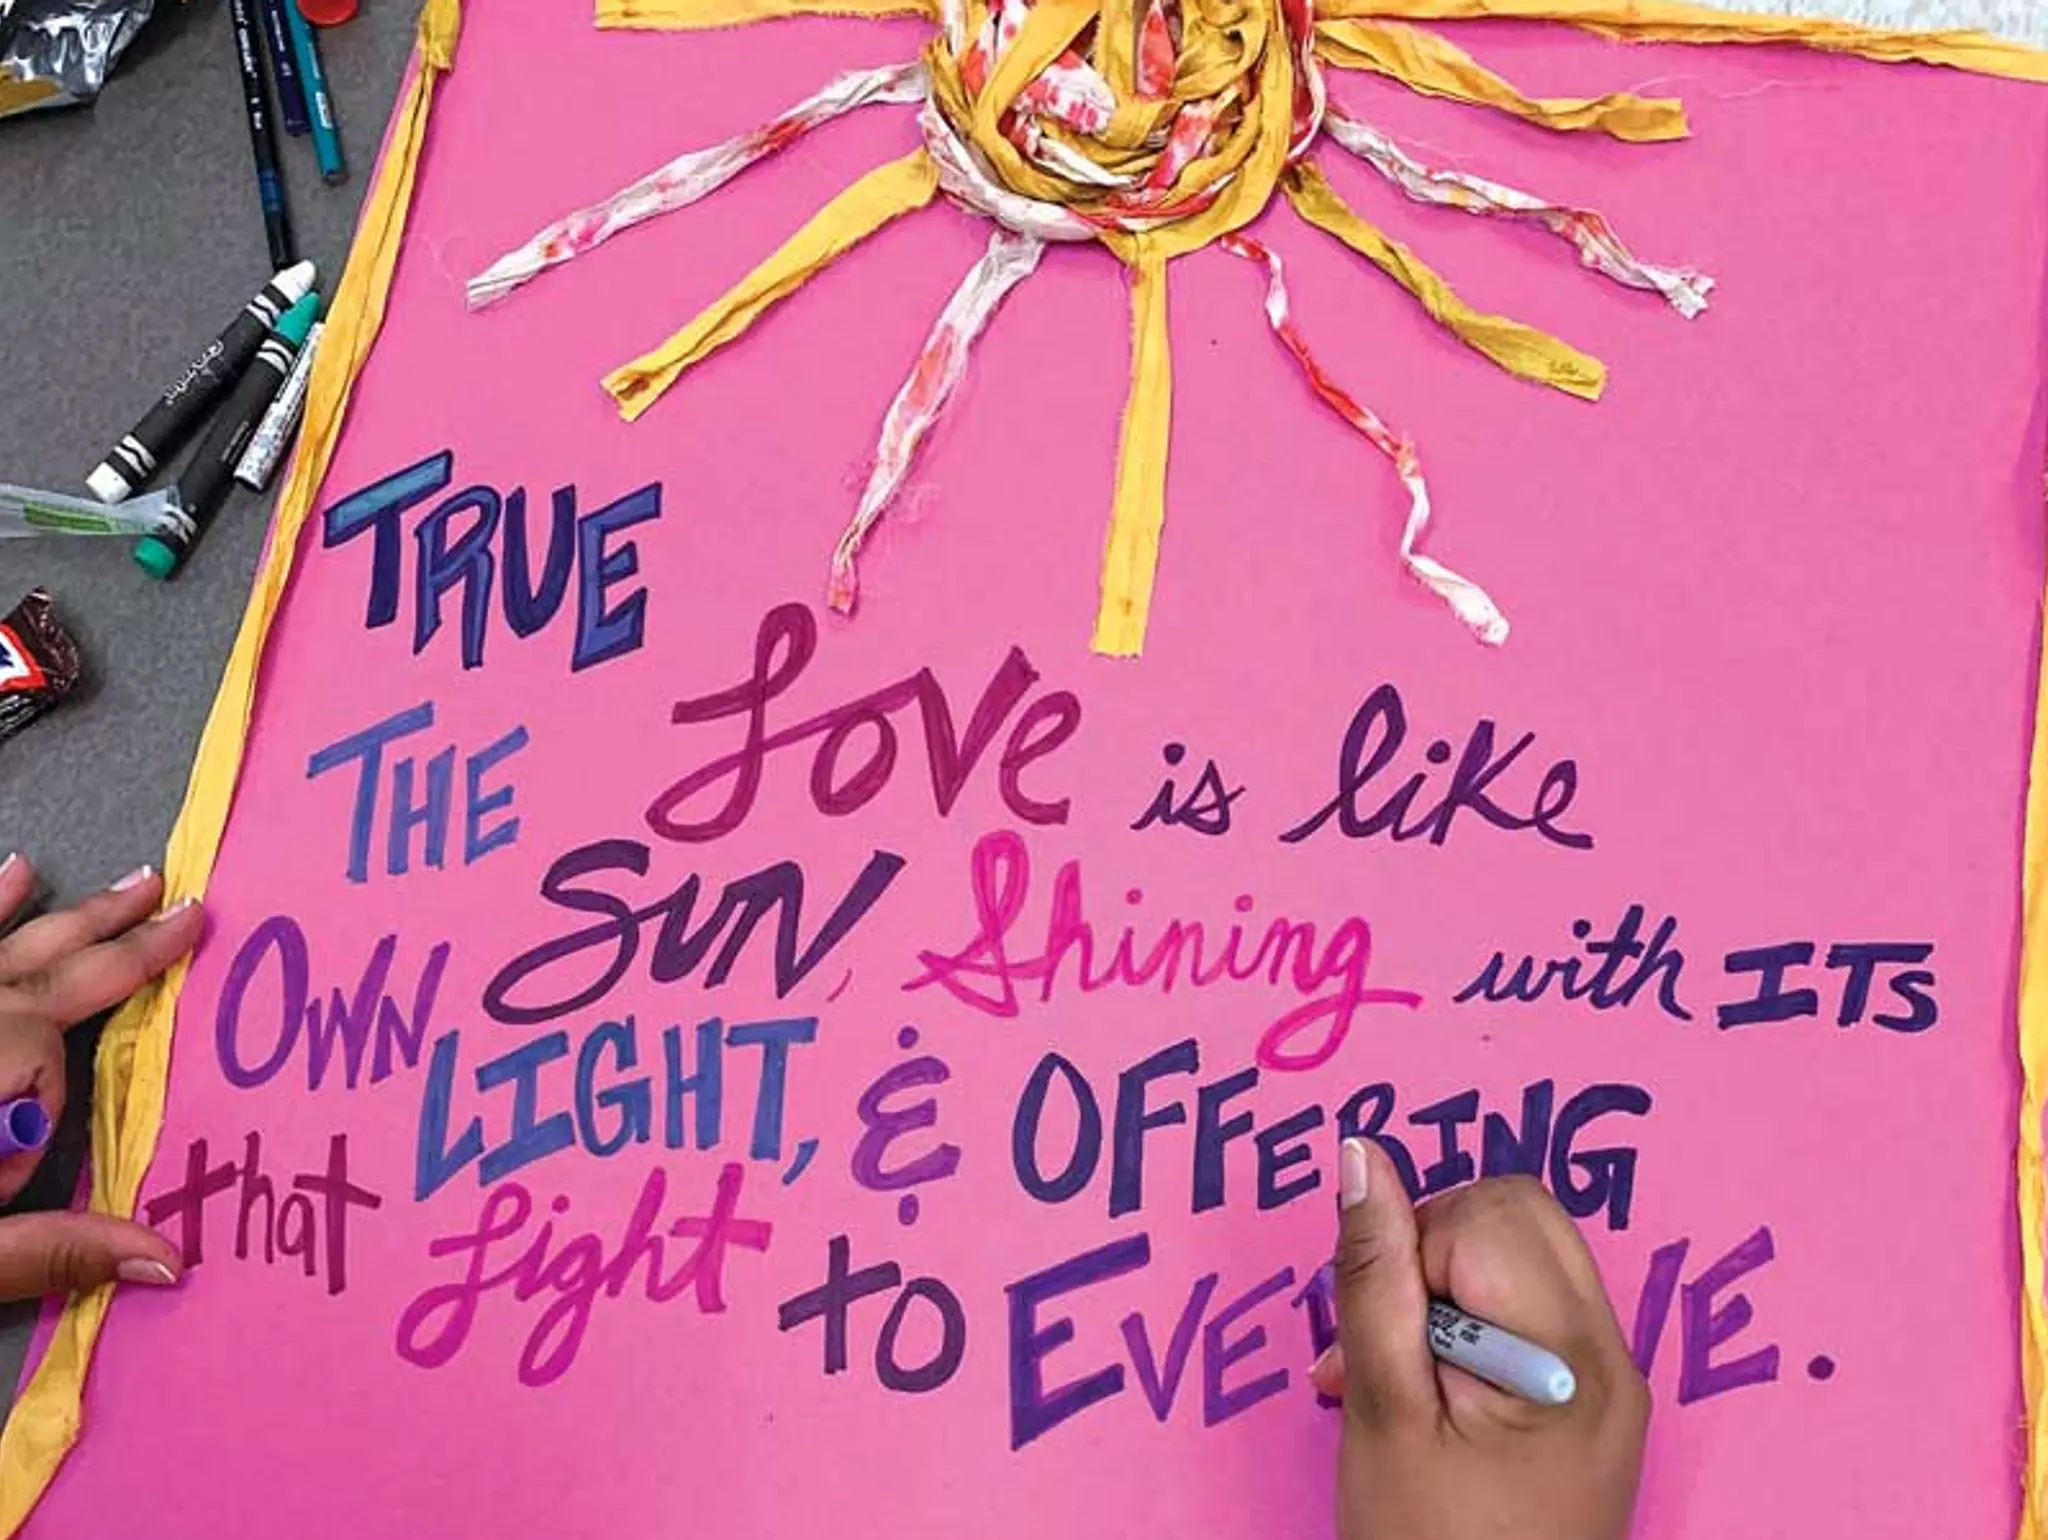 TRUE Love is like
THE SUN, Shining with ITS
OWN LIGHT, & OFFERING
that Light to EVERYONE.